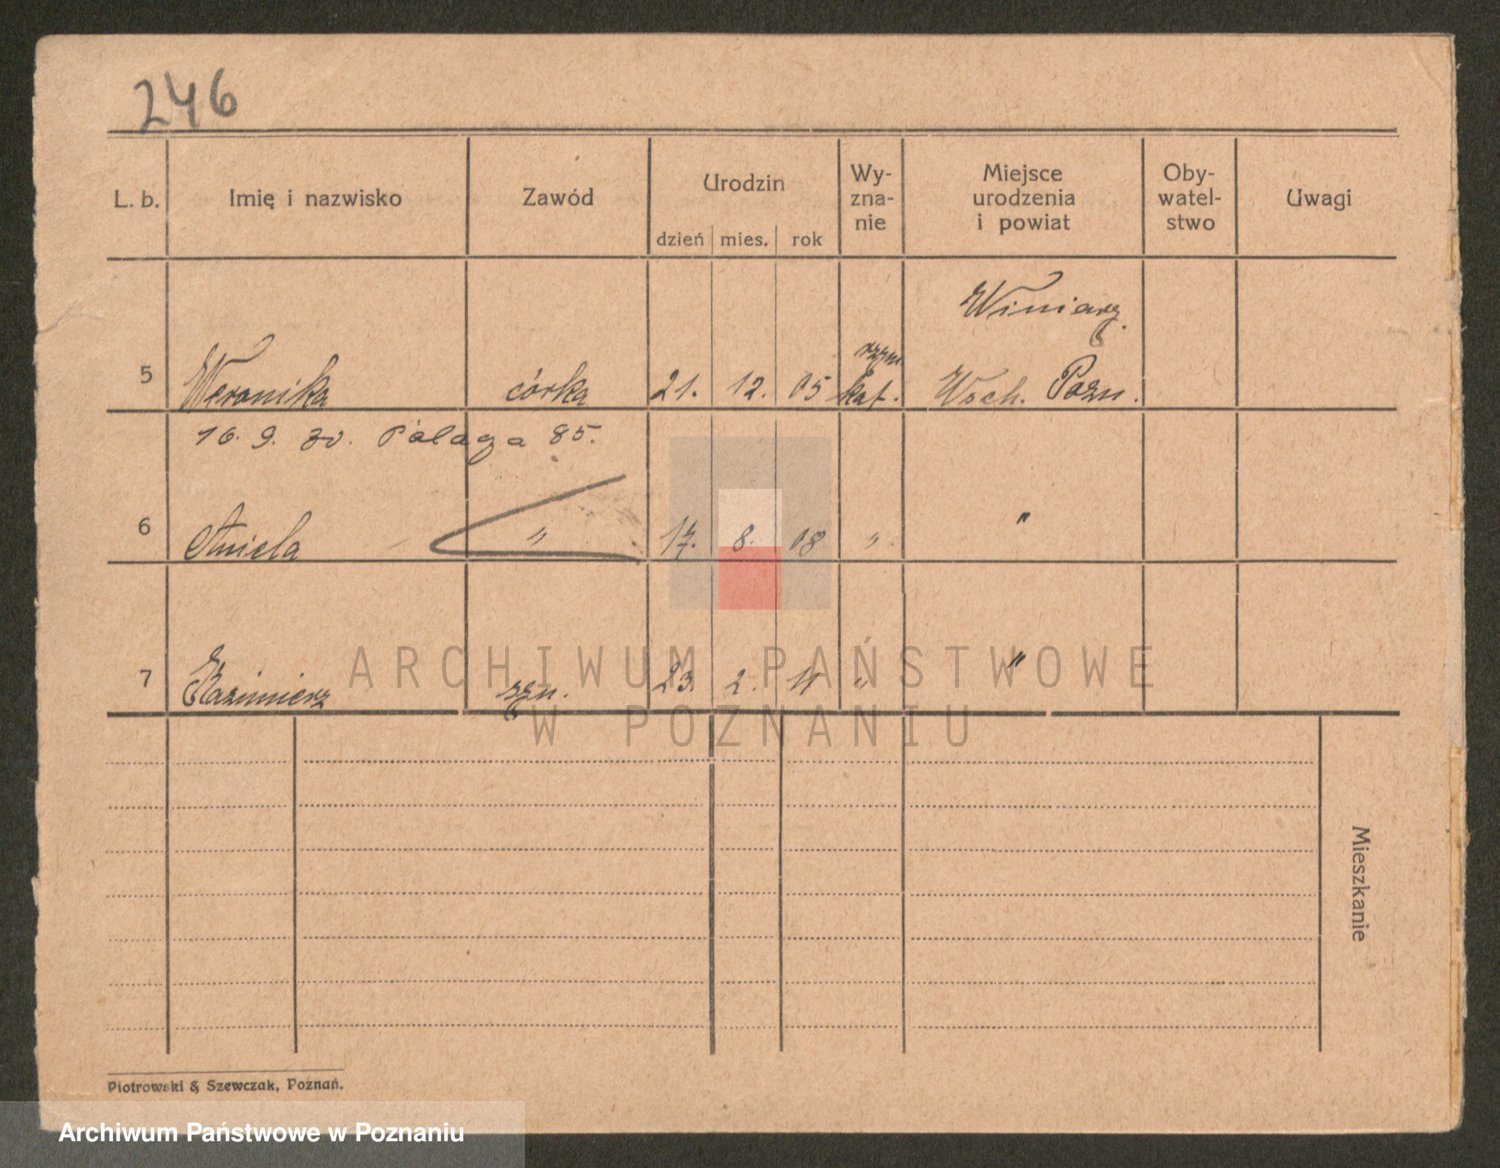 246
L. b. Imię i nazwisko Zawód Urodzin dzień mies. rok Wy-zna-nie Miejsce urodzenia i powiat Oby-watel-stwo Uwagi
Winiary
rzym
5 Weronika córka 21. 12. 05 kat. Wsch. Pozn.
16. 9. 30. 85.
6 Aniela " 17. 8. 08 " "
7 Kazimierz syn. 23. 2. 11 " "
ARCHIWUM PAŃSTWOWE
W POZNANIU
Mieszkanie
Piotrowski & Szewczak, Poznań.
Archiwum Państwowe w Poznaniu